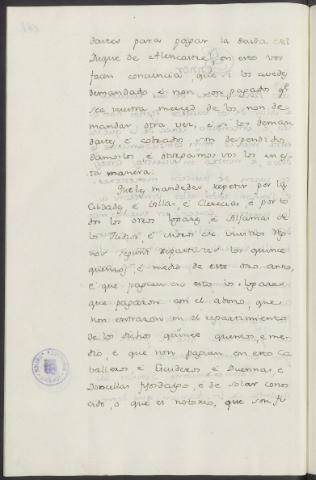 dastes para pagar la deuda del
Duque de Alencastre, con esto vos
facen conciencia, que si los avedes
demandado, é non son pagados q.e
sea vuestra merced de los non de-
mandar otra vez, é si los deman-
dastes é cobrados son despendidos
dámoslos, é otorgamos vos los en es-
ta manera.
Que los mandedes repetir por las
Cibdades é Villas, é Clerecias é por to
dos los otros logares, é Aljamas de
los Judios, é Moros de vuestros Reg-
nos segunt repartistes los quince
quentos, é medio de este otro anno,
é que paguen en esto los logares
que pagaron en el abono, que
non entraron en el repartimiento
de los dichos quince quentos, é me-
dio, é que non paguen en esto Ca
balleros é Escuderos é Duennas, é
Doncellas fijosdalgo, é de solar conos
cido, o que es notorio, que son fi